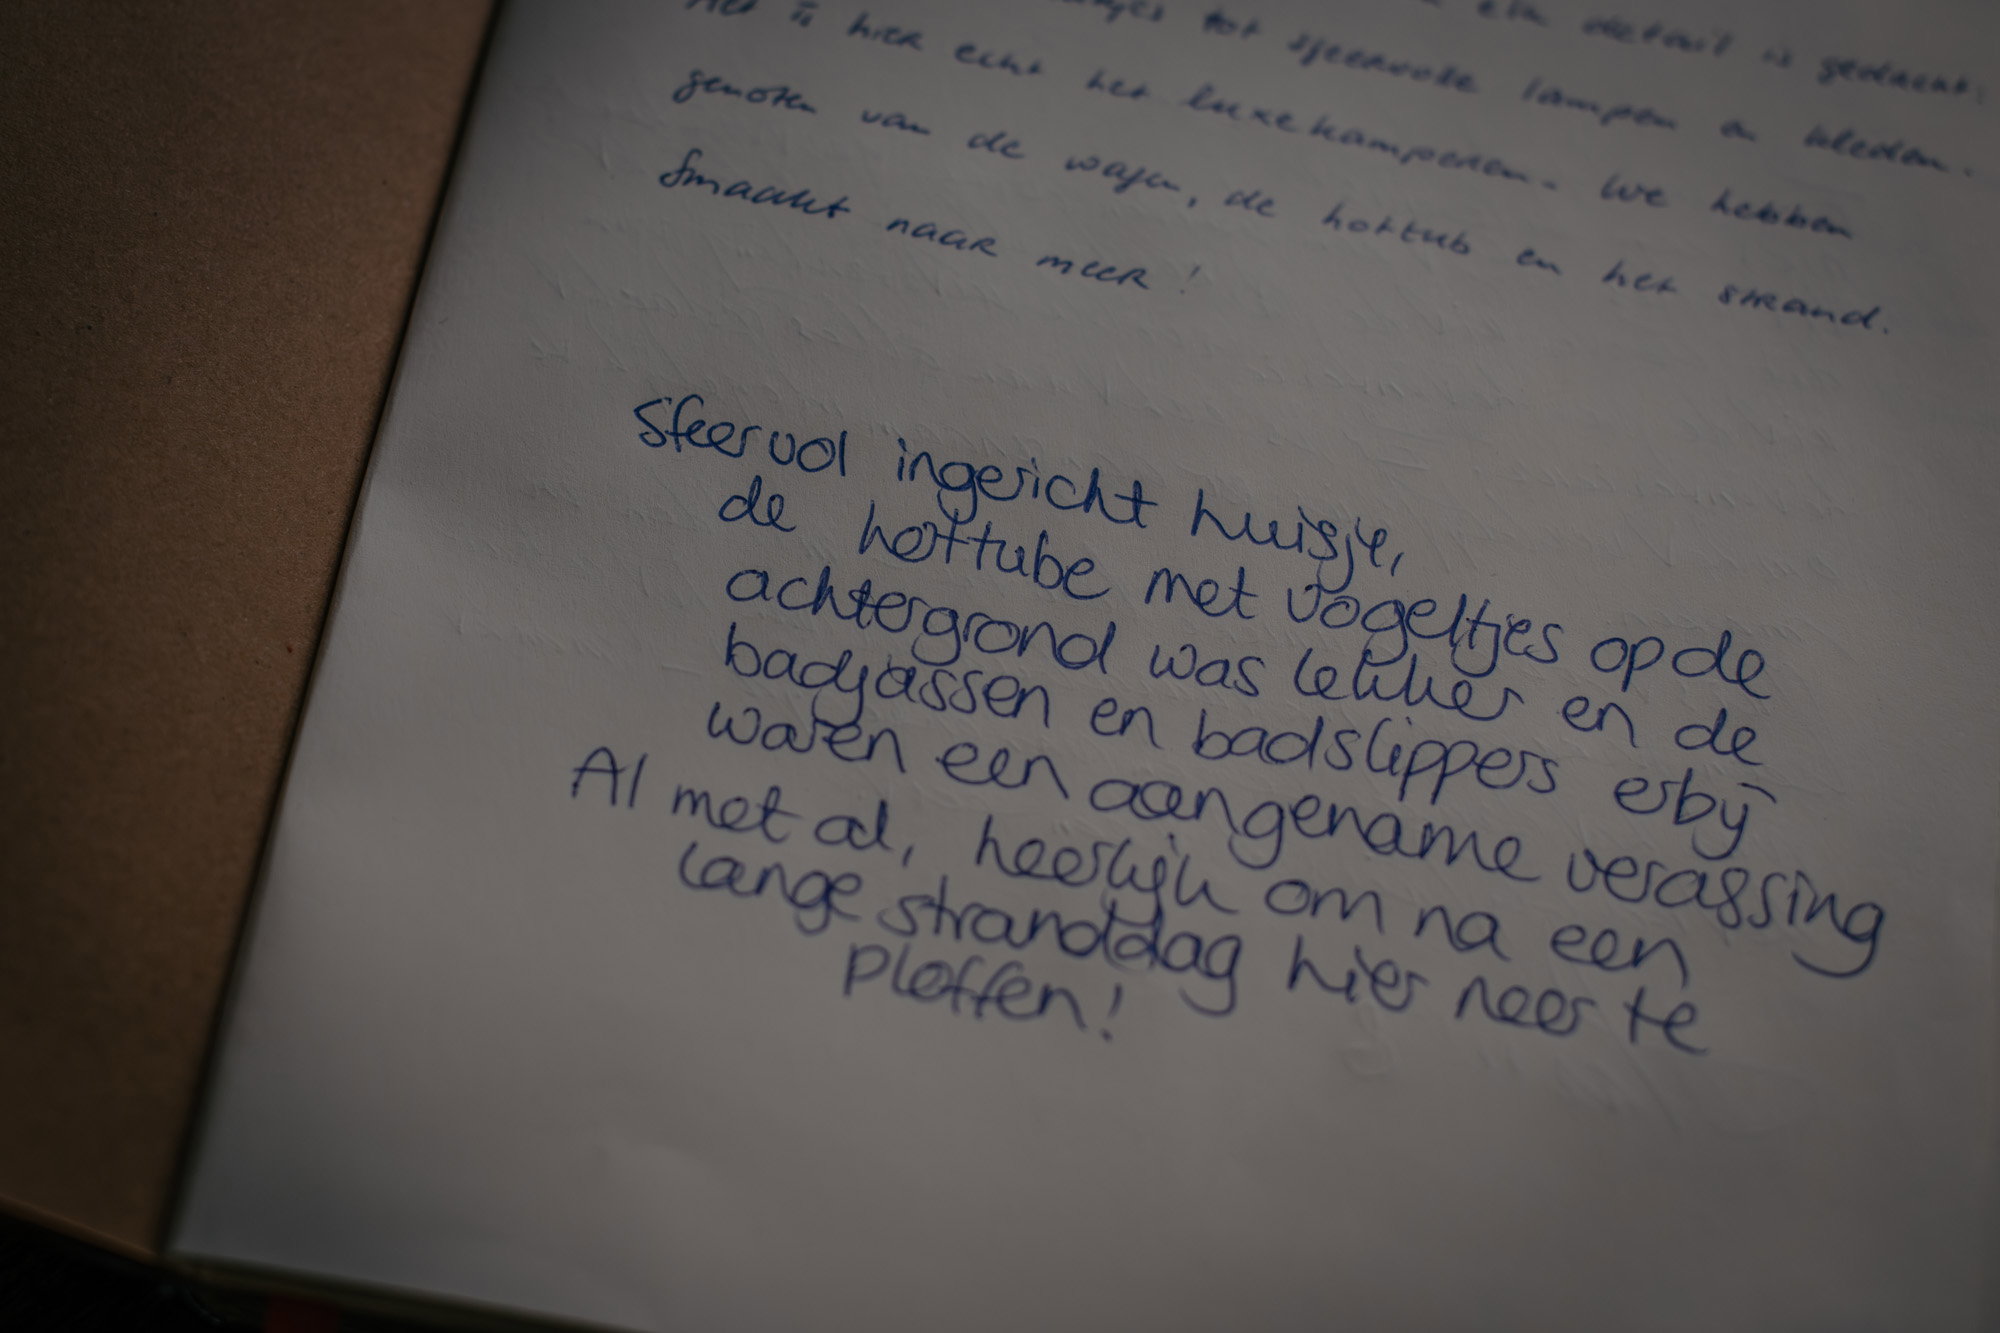 elk detail is gedacht:
tot sfeervolle lampen en kleden.
Het is hier echt het luxe kamperen. We hebben
genoten van de wajen, de hottub en het strand.
Smaakt naar meer!
Sfeervol ingericht huisje,
de hottube met vogeltjes op de
achtergrond was lekker en de
badjassen en badslippers erbij
waren een aangename verassing
Al met al, heerlijk om na een
lange stranddag hier neer te
ploffen!